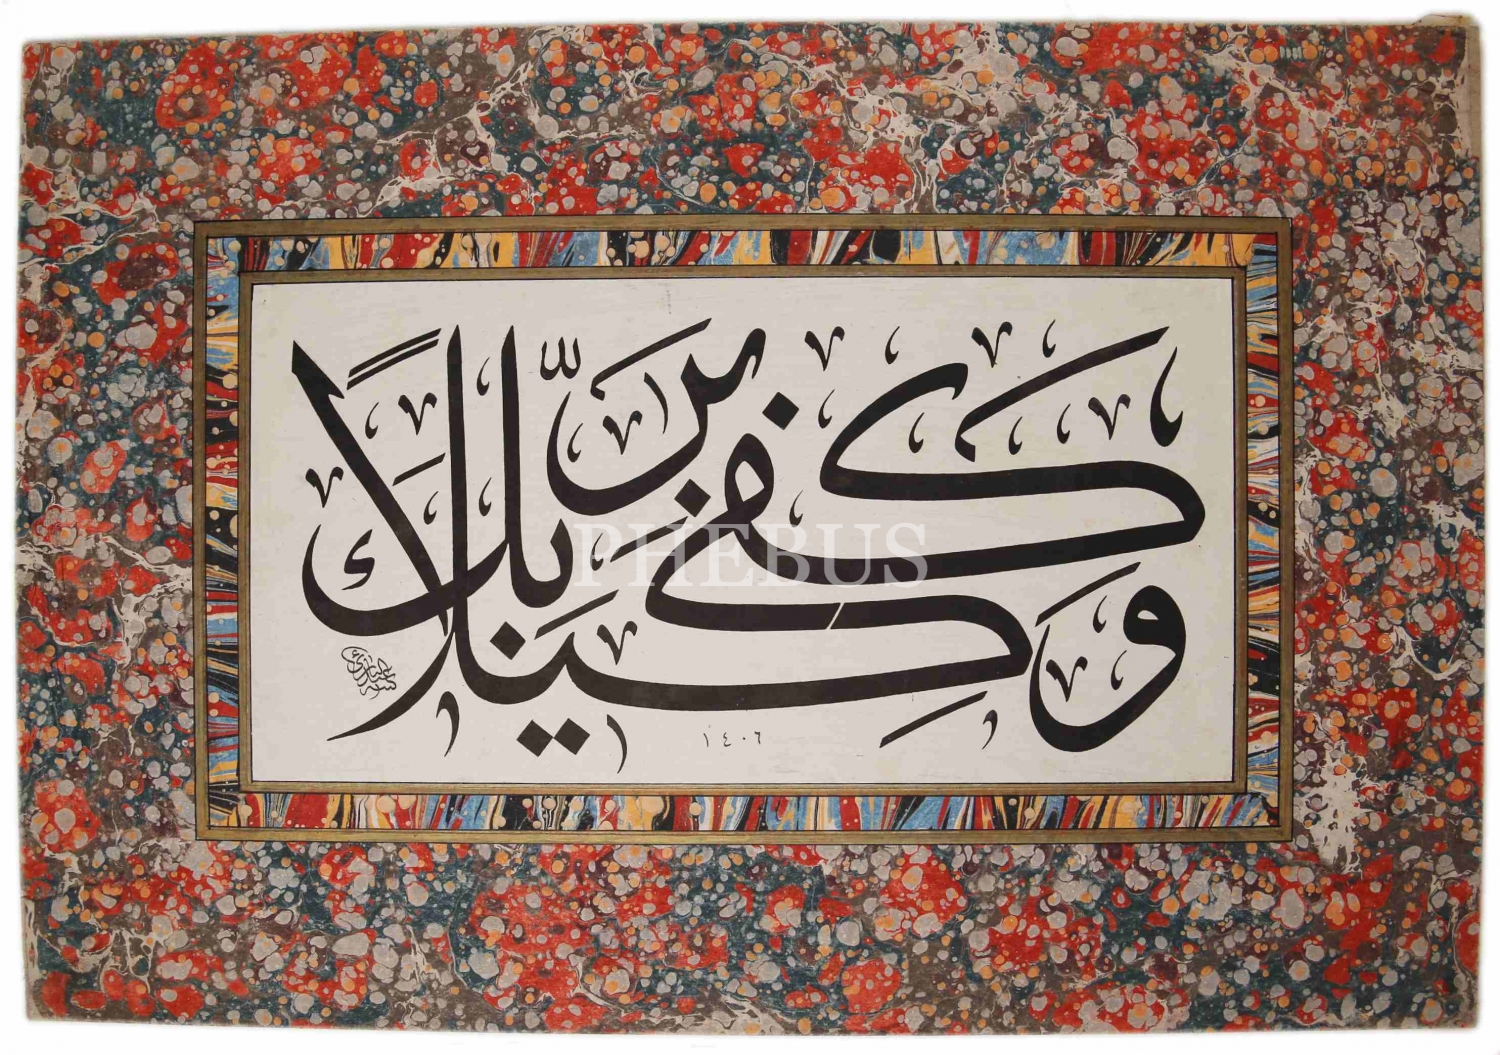 وَكَفَىٰ بِرَبِّكَ وَكِيلًا
١٤٠٦
PHEBUS